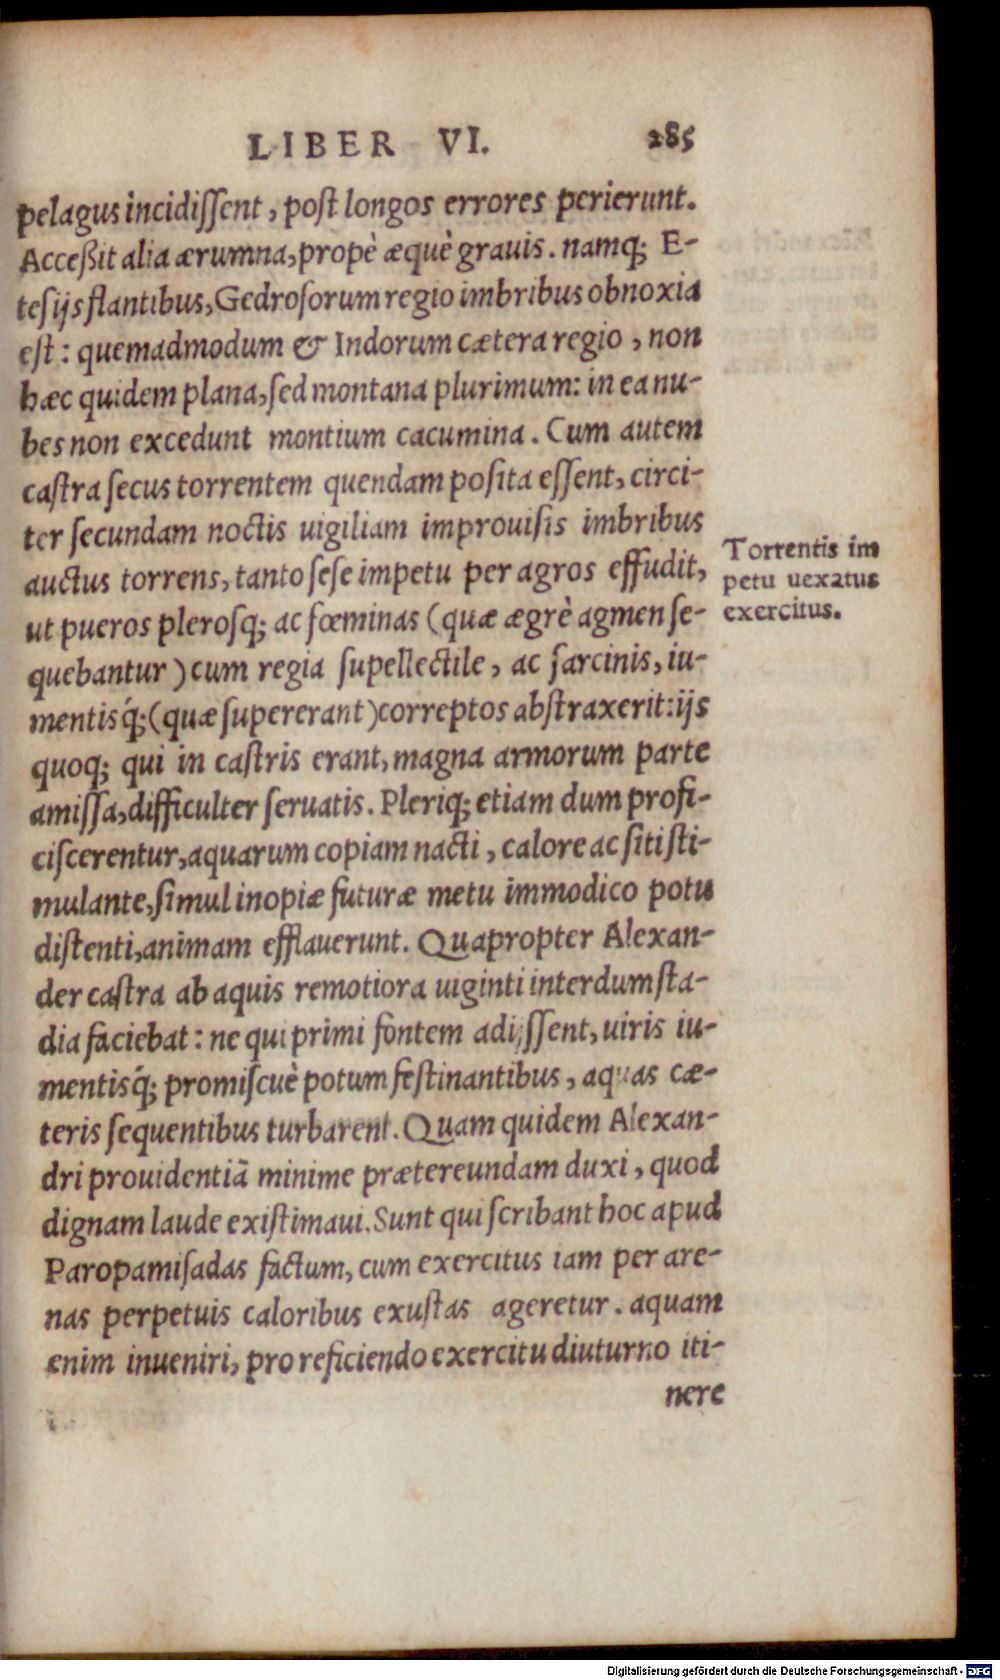 LIBER VI. 285
pelagus incidissent, post longos errores perierunt.
Acceßit alia ærumna, propè æquè grauis. namq; E-
tesijs flantibus, Gedrosorum regio imbribus obnoxia
est: quemadmodum & Indorum cætera regio, non
hæc quidem plana, sed montana plurimum: in ea nu-
bes non excedunt montium cacumina. Cum autem
castra secus torrentem quendam posita essent, circi-
ter secundam noctis uigiliam improuisis imbribus
auctus torrens, tanto sese impetu per agros effudit,
ut pueros plerosq; ac fœminas (quæ ægrè agmen se-
quebantur) cum regia supellectile, ac sarcinis, iu-
mentisq́; (quæ supererant) correptos abstraxerit: ijs
quoq; qui in castris erant, magna armorum parte
amissa, difficulter seruatis. Pleriq; etiam dum profi-
ciscerentur, aquarum copiam nacti, calore ac siti sti-
mulante, simul inopiæ futuræ metu immodico potu
distenti, animam efflauerunt. Quapropter Alexan-
der castra ab aquis remotiora uiginti interdum sta-
dia faciebat: ne qui primi fontem adijssent, uiris iu-
mentisq́; promiscuè potum festinantibus, aquas cæ-
teris sequentibus turbarent. Quam quidem Alexan-
dri prouidentiã minime prætereundam duxi, quod
dignam laude existimaui. Sunt qui scribant hoc apud
Paropamisadas factum, cum exercitus iam per are-
nas perpetuis caloribus exustas ageretur. aquam
enim inueniri, pro reficiendo exercitu diuturno iti-
nere
Torrentis im
petu uexatus
exercitus.
Digitalisierung gefördert durch die Deutsche Forschungsgemeinschaft - DFG